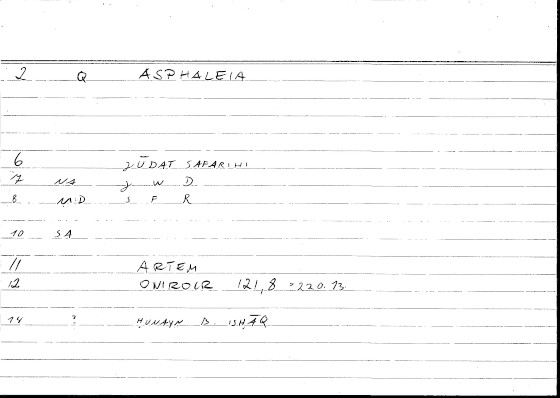 2 Q ASPHALEIA
6 ǧŪDAT SAFARIHI
7 NA ǧ W D
8 MD S F R
10 SA
11 ARTEM
12 ONIROCR 121,8 = 220.13
14 ? ḤUNAYN B. ISḤĀQ